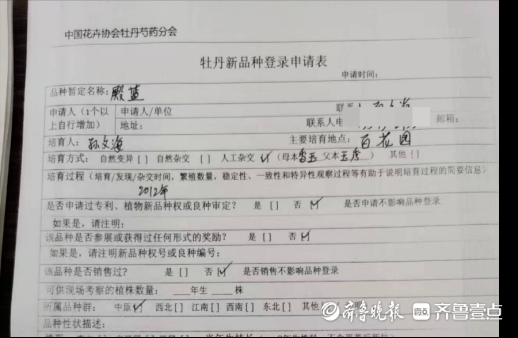 中国花卉协会牡丹芍药分会
牡丹新品种登录申请表
申请时间：
品种暂定名称：殿蓝
申请人（1个以上自行增加） 申请人/单位
地址： 联系人电 邮箱：
培育人：孙文海 主要培育地点：百花园
培育方式： 自然变异 [ ] 自然杂交 [ ] 人工杂交 ✓ （母本 父本 ） 其他 [ ]
培育过程（培育/发现/杂交时间，繁殖数量，稳定性、一致性和特异性观察过程等有助于说明培育过程的简要信息）
2012年
是否申请过专利、植物新品种权或良种审定？ 是 [ ] 否 [✓] 是否申请不影响品种登录
如果是，请注明：
该品种是否参展或获得过任何形式的奖励？ 是 [ ] 否 [✓]
如果是，请注明新品种权号或良种编号：
该品种是否销售过？ 是 [ ] 否 [✓] 是否销售不影响品种登录
可供现场考察的植株数量： ___年生___株
所属品种群： 中原[✓] 西北[ ] 江南[ ] 西南[ ] 东北[ ] 其他
品种性状描述：
齐鲁晚报 齐鲁壹点